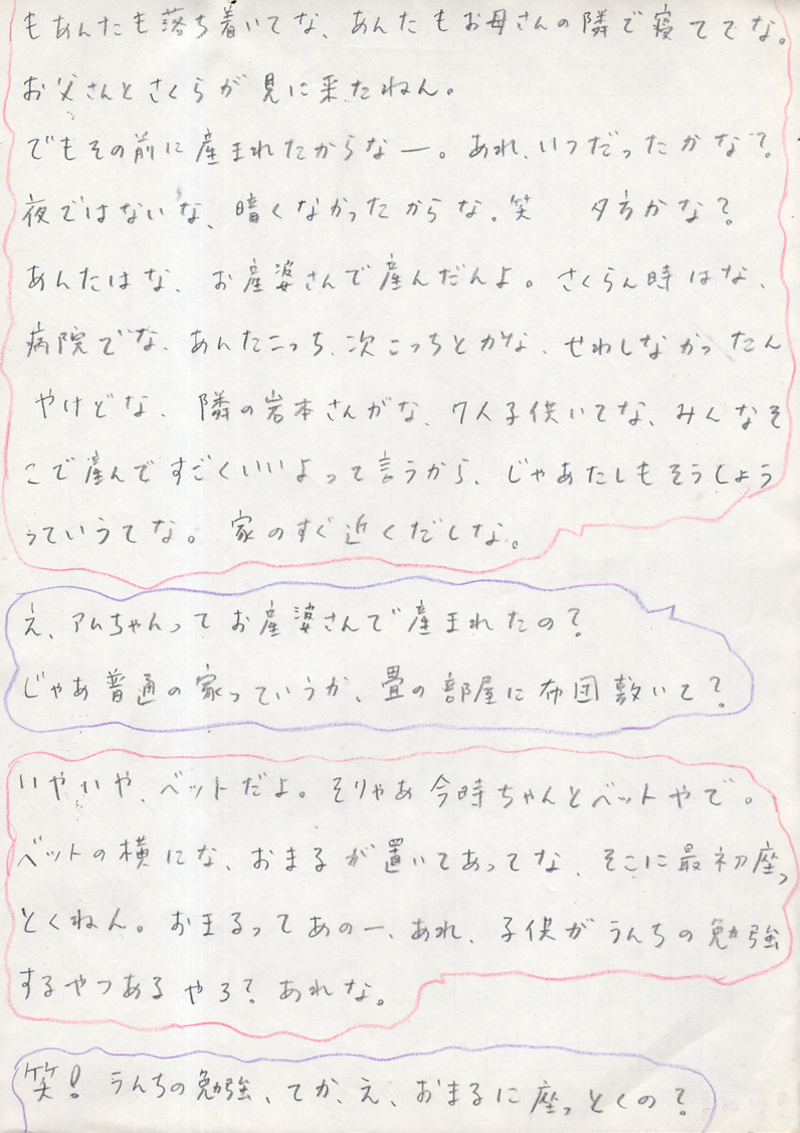 もあんたも落ち着いてな、あんたもお母さんの隣で寝てでな。
お父さんとさくらが見に来たねん。
でもその前に産まれたからなー。あれ、いつだったかな?
夜ではないな、暗くなかったからな。笑 夕方かな?
あんたはな、お産婆さんで産んだんよ。さくらん時はな、
病院でな、あんたこっち、次こっちとかな、せわしなかったん
やけどな、隣の岩本さんがな、7人子供いてな、みんなそ
こで産んですごくいいよって言うから、じゃあたしもそうしょう
っていうてな。家のすぐ近くだしな。
え、アムちゃんってお産婆さんで産まれたの?
じゃあ普通の家っていうか、畳の部屋に布団敷いて?
いやいや、ベットだよ。そりゃあ今時ちゃんとベットやで。
ベットの横にな、おまるが置いてあってな、そこに最初座っ
とくねん。おまるってあのー、あれ、子供がうんちの勉強
するやつあるやろ?あれな。
笑!うんちの勉強、てか、え、おまるに座っとくの?